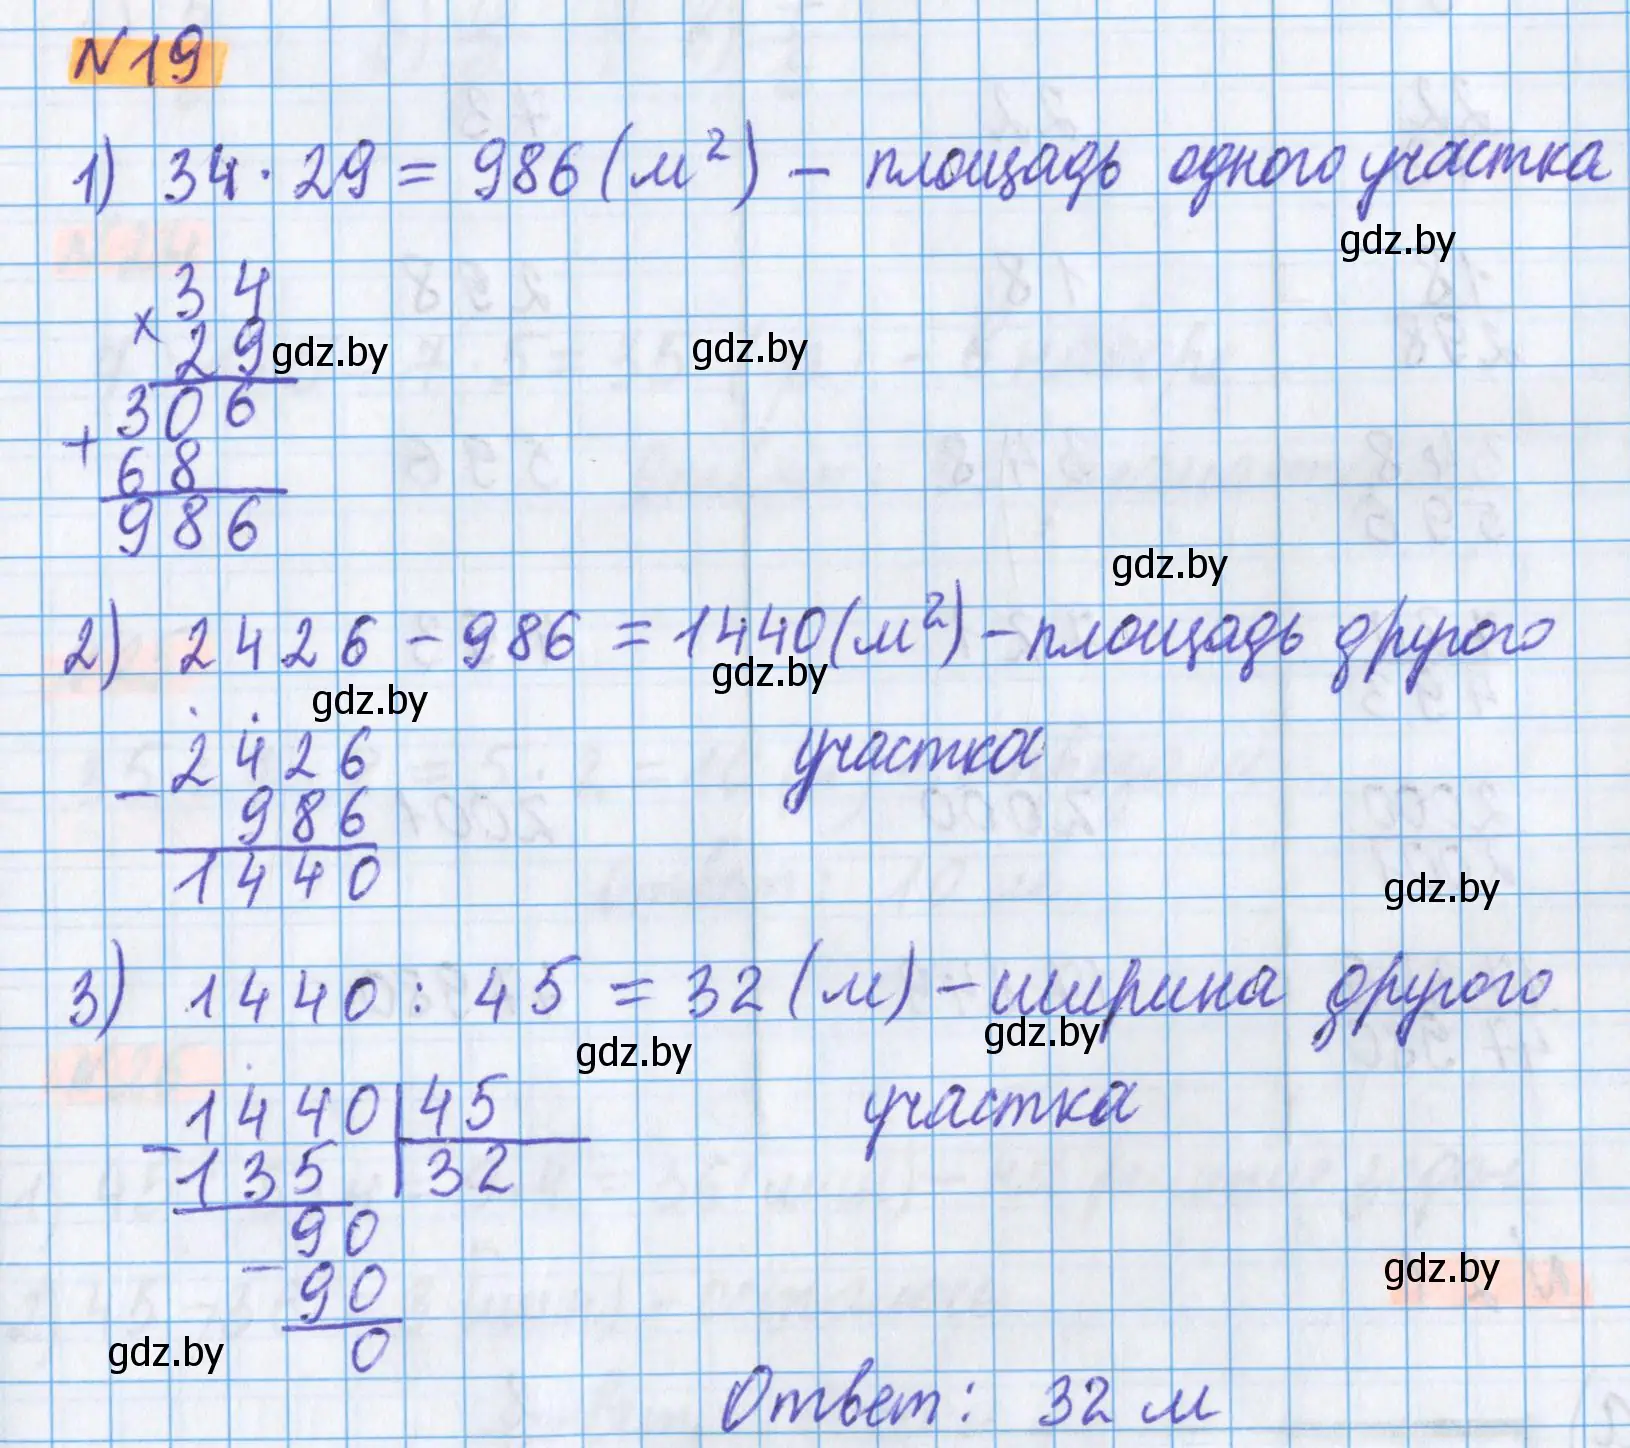 N 19
1) 34 · 29 = 986 (м²) – площадь одного участка
gdz.by
34
× 29
gdz.by
gdz.by
306
+ 68
986
gdz.by
2) 2426 – 986 = 1440 (м²) – площадь другого
участка
gdz.by
gdz.by
2426
– 986
1440
gdz.by
3) 1440 : 45 = 32 (м) – ширина другого
участка
gdz.by
gdz.by
1440 | 45
– 135 | 32
90
– 90
0
gdz.by
gdz.by
Ответ: 32 м